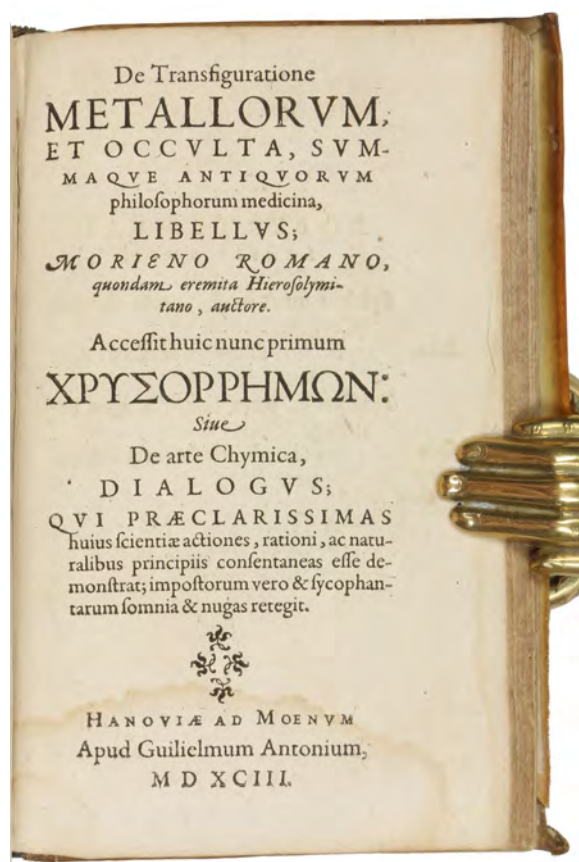 De Transfiguratione
METALLORVM,
ET OCCVLTA, SVM-
MAQVE ANTIQVORVM
philoſophorum medicina,
LIBELLVS;
MORIENO ROMANO,
quondam eremita Hieroſolymi-
tano, auctore.
Acceſſit huic nunc primum
ΧΡΥΣΟΡΡΗΜΩΝ:
Siue
De arte Chymica,
DIALOGVS;
QVI PRÆCLARISSIMAS
huius ſcientiæ actiones, rationi, ac natu-
ralibus principiis conſentaneas eſſe de-
monſtrat; impoſtorum vero & ſycophan-
tarum ſomnia & nugas retegit.
HANOVIÆ AD MOENVM
Apud Guilielmum Antonium,
M D XCIII.